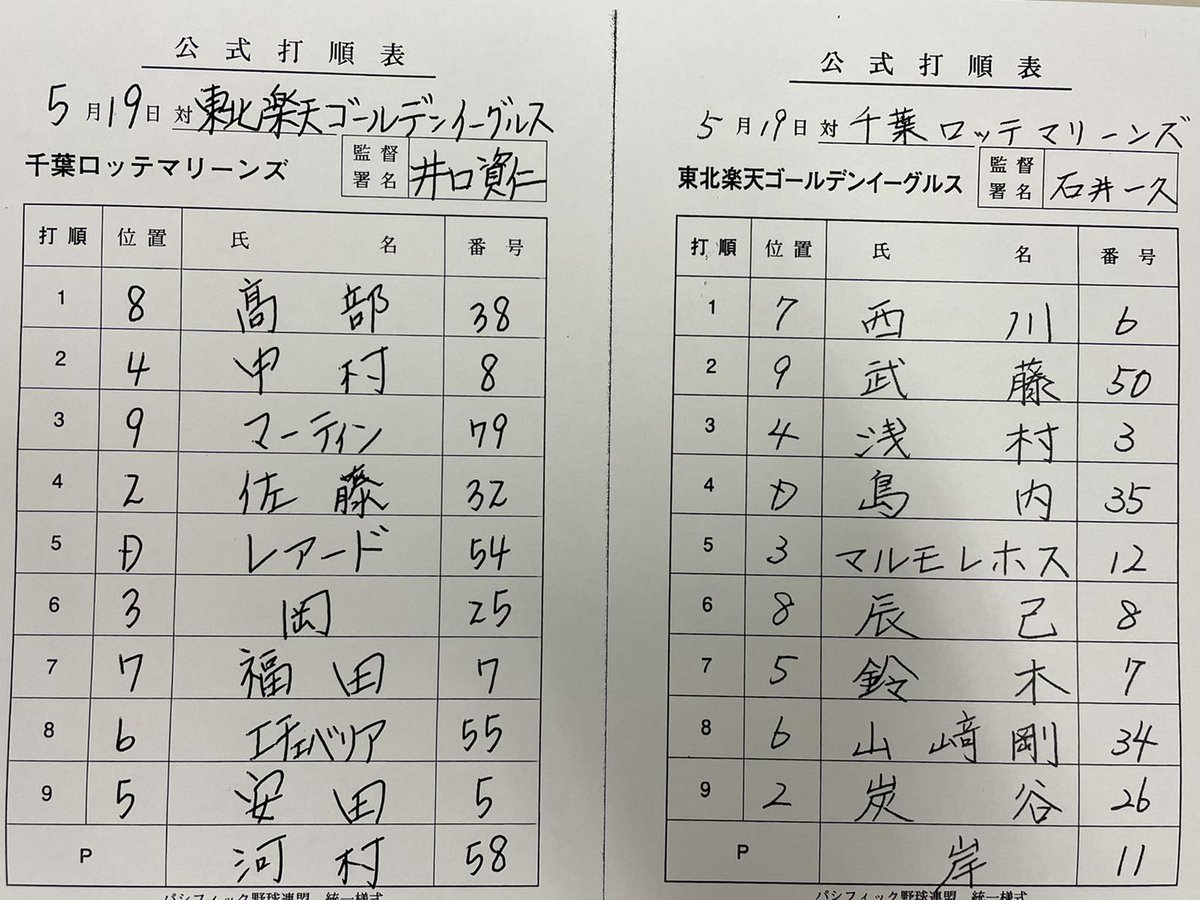 公式打順表
5月19日 対 東北楽天ゴールデンイーグルス
千葉ロッテマリーンズ 監督署名 井口資仁
打順 位置 氏名 番号
1 8 高部 38
2 4 中村 8
3 9 マーティン 79
4 2 佐藤 32
5 D レアード 54
6 3 岡 25
7 7 福田 7
8 6 エチェバリア 55
9 5 安田 5
P 河村 58
パシフィック野球連盟 統一様式
公式打順表
5月19日 対 千葉ロッテマリーンズ
東北楽天ゴールデンイーグルス 監督署名 石井一久
打順 位置 氏名 番号
1 7 西川 6
2 9 武藤 50
3 4 浅村 3
4 D 島内 35
5 3 マルモレホス 12
6 8 辰己 8
7 5 鈴木 7
8 6 山﨑剛 34
9 2 炭谷 26
P 岸 11
パシフィック野球連盟 統一様式